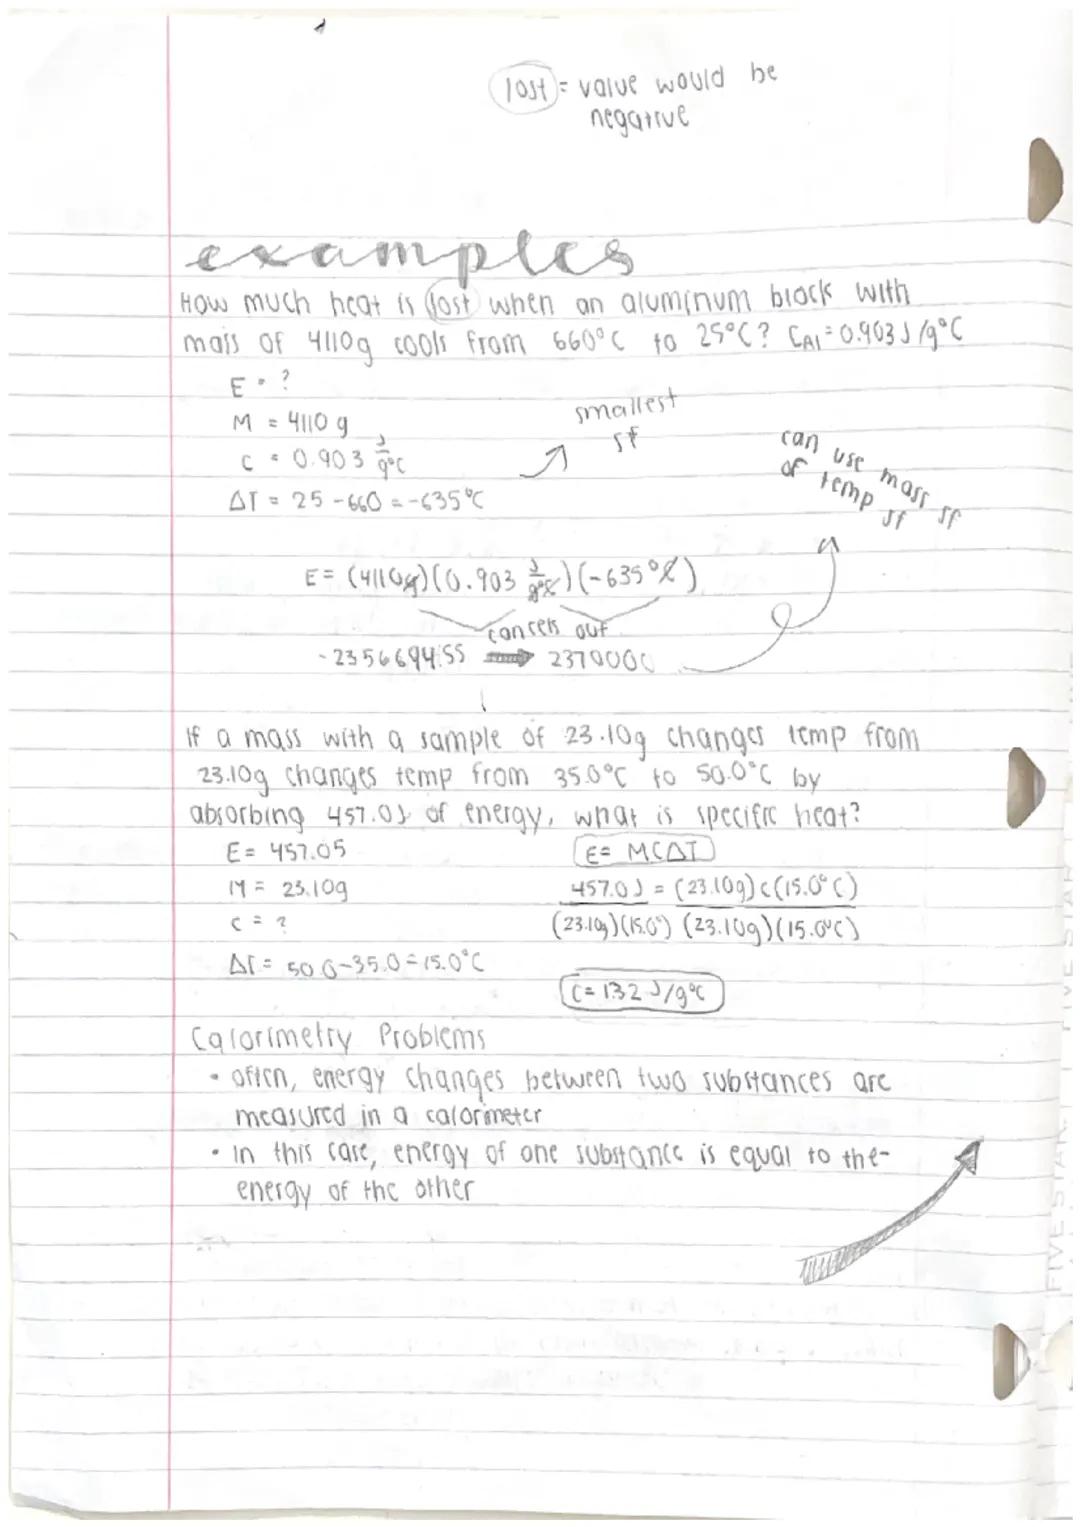 lost = value would be
negative
examples
How much heat is lost when an aluminum block with
mass of 4110g cools from 660°C to 25°C? CAl = 0.903 J/g°C
E = ?
M = 4110 g
C = 0.903 J/g°C
ΔT = 25 - 660 = -635°C
smallest
sf
can use mass sf
or temp sf
E = (4110g)(0.903 J/g°C)(-635°C)
cancels out
-2356694.55 → 2370000
If a mass with a sample of 23.10g changes temp from
23.10g changes temp from 35.0°C to 50.0°C by
absorbing 457.0J of energy, what is specific heat?
E = 457.05
M = 23.10g
C = ?
ΔT = 50.0-35.0 = 15.0°C
E = MCΔT
457.0J = (23.10g)c(15.0°C)
(23.10g)(15.0°) (23.10g)(15.0°C)
C = 1.32 J/g°C
Calorimetry Problems
• often, energy changes between two substances are
measured in a calorimeter
• in this case, energy of one substance is equal to the-
energy of the other
FIVE STAR